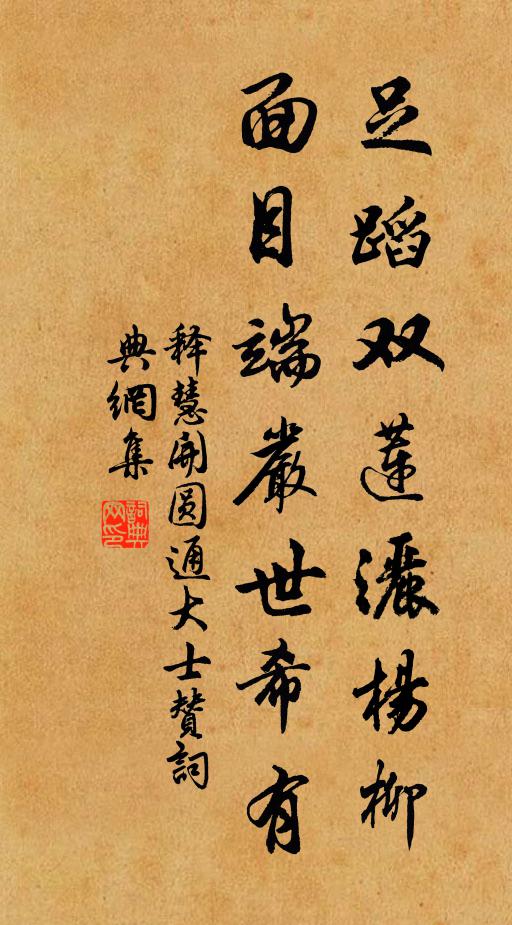 足蹈双莲灑楊柳
面目端嚴世希有
释慧開圆通大士赞詞
典網集
詞典网印